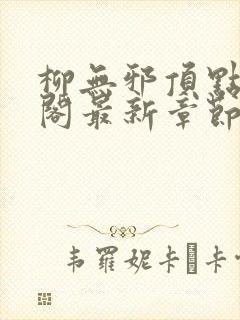 柳無邪頂點
閣最新章節
韦羅妮卡�卡